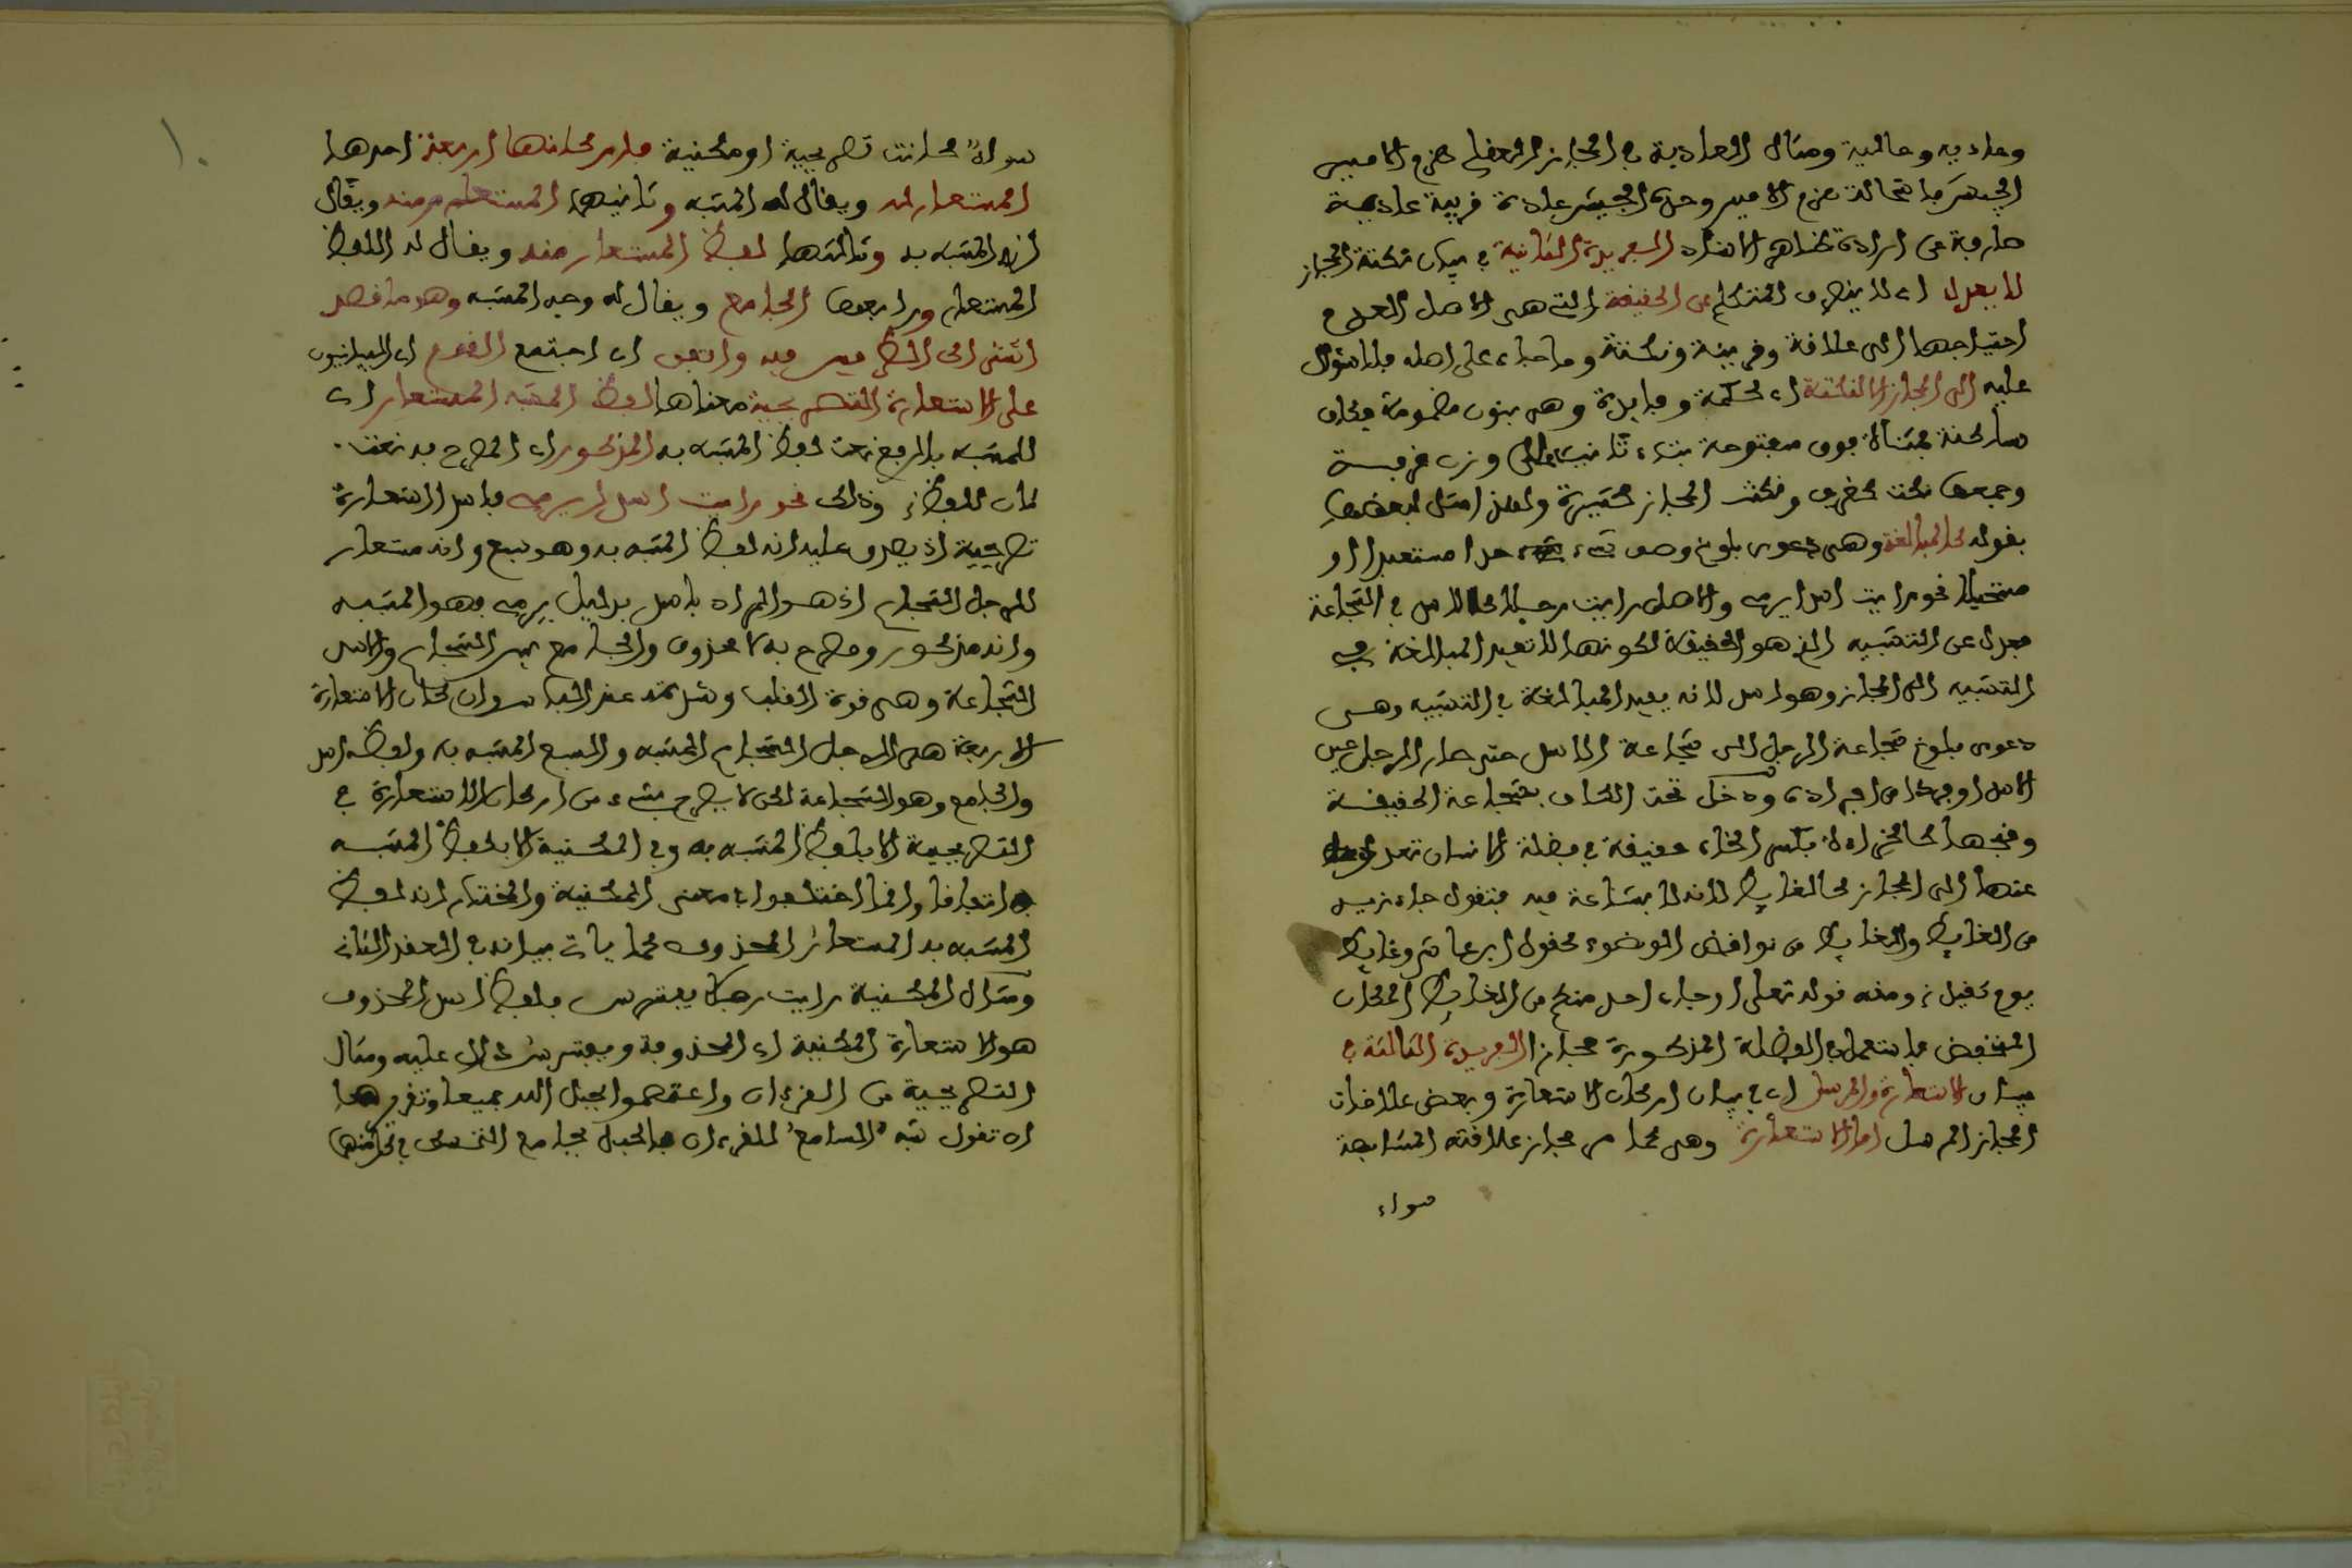 وعاديه وحالية ومثال العادية في المجاز العقلي هزم الامير
الجيش باستحالة هزم الامير وحده الجيش عادة قرينة عادية
صارفة عن ارادة ظاهر الاسناد الفريدة الثانية في بيان نكتة المجاز
لا يعدل اي لا ينصرف المتكلم عن الحقيقة التي هي الاصل لعدم
احتياجها الى علاقة وقرينة ونكتة وما جاء على اصله فلا سؤال
عليه الى المجاز الا لنكتة اي حكمة وفايدة وهي بنون مضمومة فكاف
ساكنة فمثناة فوق مفتوحة بتاء تانيث على وزن غرفة
وجمعها نكت كغرف ونكت المجاز كثيرة ولهذا مثل لبعضها
بقوله كالمبالغة وهي دعوى بلوغ وصف شيء حدا مستبعدا او
مستحيلا نحو رايت اسدا يرمي والاصل رايت رجلا كالاسد في الشجاعة
فعدل عن التشبيه الذي هو الحقيقة لكونها لا تفيد المبالغة في
التشبيه الى المجاز وهو اسد لانه يفيد المبالغة في التشبيه وهي
دعوى بلوغ شجاعة الرجل الى شجاعة الاسد حتى صار الرجل عين
الاسد او فردا من افراده ودخل تحت الكاف بشجاعة الحقيقة
وقبحها كالخراءة بكسر الخاء حقيقة في فضلة الانسان تعدل
عنها الى المجاز كالغايط لانه لا بشاعة فيه فتقول جاء زيد
من الغايط والغايط من نواقض الوضوء كقول ابن عاشر وغايط
نوم ثقيل ومنه قوله تعلى او جاء احد منكم من الغايط المكان
المنخفض فاستعمل في الفضلة المذكورة مجازا الفريدة الثالثة في
بيان الاستعارة والمرسل اي في بيان اركان الاستعارة وبعض علاقات
المجاز المرسل اما الاستعارة وهي كما مر مجاز علاقته المشابهة
سواء
سواء كانت تصريحية او مكنية فاركانها اربعة احدها
المستعار له ويقال له المشبه وثانيها المستعار منه ويقال
له المشبه به وثالثها لفظ المستعار منه ويقال له اللفظ
المستعار ورابعها الجامع ويقال له وجه المشبه وهو ما قصد
اشتراك الطرفين فيه واتفق اي اجتمع القوم اي البيانيون
على الاستعارة التصريحية معناها لفظ المشبه المستعار اي
للمشبه بالرفع نعت لفظ المشبه به المذكور اي المصرح به نعت
ثان للفظ وذلك نحو رايت اسدا يرمي فاسد استعارة
تصريحية اذ يصدق عليه انه لفظ المشبه به وهو سبع وانه مستعار
للرجل الشجاع اذ هو المراد باسد بدليل يرمي فهو المشبه
وانه مذكور ومصرح به لا محذوف والجامع بين الشجاع والاسد
الشجاعة وهي قوة القلب وشدته عند الباس واركان الاستعارة
الاربعة هي الرجل الشجاع المشبه والسبع المشبه به ولفظ اسد
والجامع وهو الشجاعة لكن لا يصرح بشيء من اركان الاستعارة في
التصريحية الا بلفظ المشبه به وفي المكنية الا بلفظ المشبه
اتفاقا وانما اختلفوا في معنى المكنية والمختار انه لفظ
المشبه به المستعار المحذوف كما ياتي بيانه في العقد الثاني
ومثال المكنية رايت رجلا يفترس فلفظ اسد المحذوف
هو الاستعارة المكنية اي المحذوفة ويفترس دال عليه ومثال
التصريحية من القرءان واعتصموا بحبل الله جميعا وتقريرها
ان تقول شبه المسامع للقرءان بالحبل بجامع التمسك في كل منهما